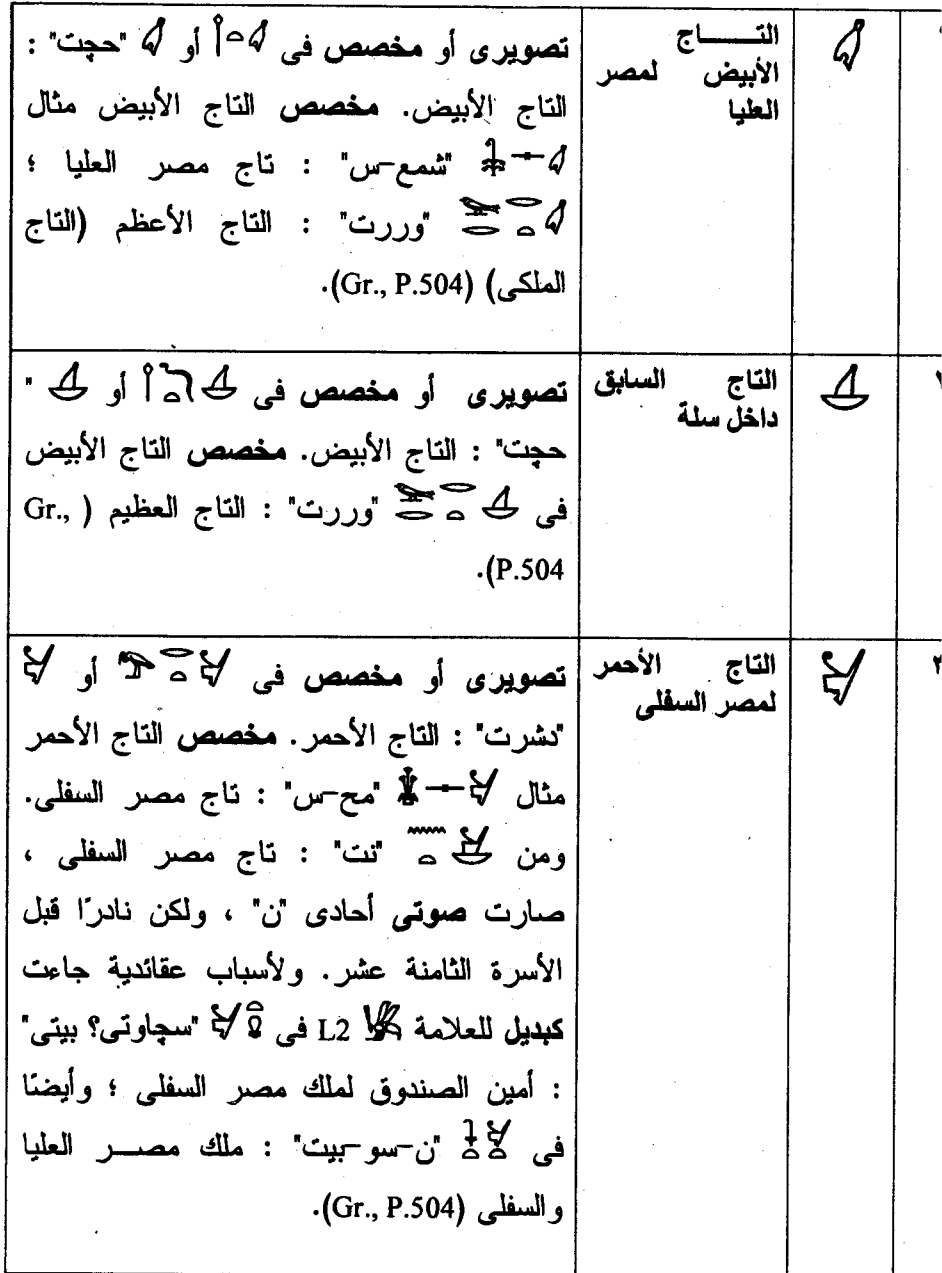 التـــــاج
الأبيض لمصر
العليا
تصويرى أو مخصص فى 𓌉𓏏𓋑 أو 𓋑 "حچت" :
التاج الأبيض. مخصص التاج الأبيض مثال
𓇗𓋴𓋑 "شمع-س" : تاج مصر العليا ؛
𓅨𓂋𓂋𓏏𓋑 "وررت" : التاج الأعظم (التاج
الملكى) (Gr., P.504).
التاج السابق
داخل سلة
تصويرى أو مخصص فى 𓌉𓆓𓏏𓋒 أو 𓋒 "
حچت" : التاج الأبيض. مخصص التاج الأبيض
فى 𓅨𓂋𓂋𓏏𓋒 "وررت" : التاج العظيم ( Gr.,
P.504).
٣
التاج الأحمر
لمصر السفلى
تصويرى أو مخصص فى 𓅟𓂋𓏏𓋔 أو 𓋔
"دشرت" : التاج الأحمر. مخصص التاج الأحمر
مثال 𓇉𓋴𓋔 "مح-س" : تاج مصر السفلى.
ومن 𓈖𓏏𓋕 "نت" : تاج مصر السفلى ،
صارت صوتى أحادى "ن" ، ولكن نادرًا قبل
الأسرة الثامنة عشر. ولأسباب عقائدية جاءت
كبديل للعلامة 𓆤 L2 فى 𓋔 "سچاوتى؟ بيتى"
: أمين الصندوق لملك مصر السفلى ؛ وأيضًا
فى 𓇓𓏏𓋔𓏏 "ن-سو-بيت" : ملك مصـــر العليا
والسفلى (Gr., P.504).